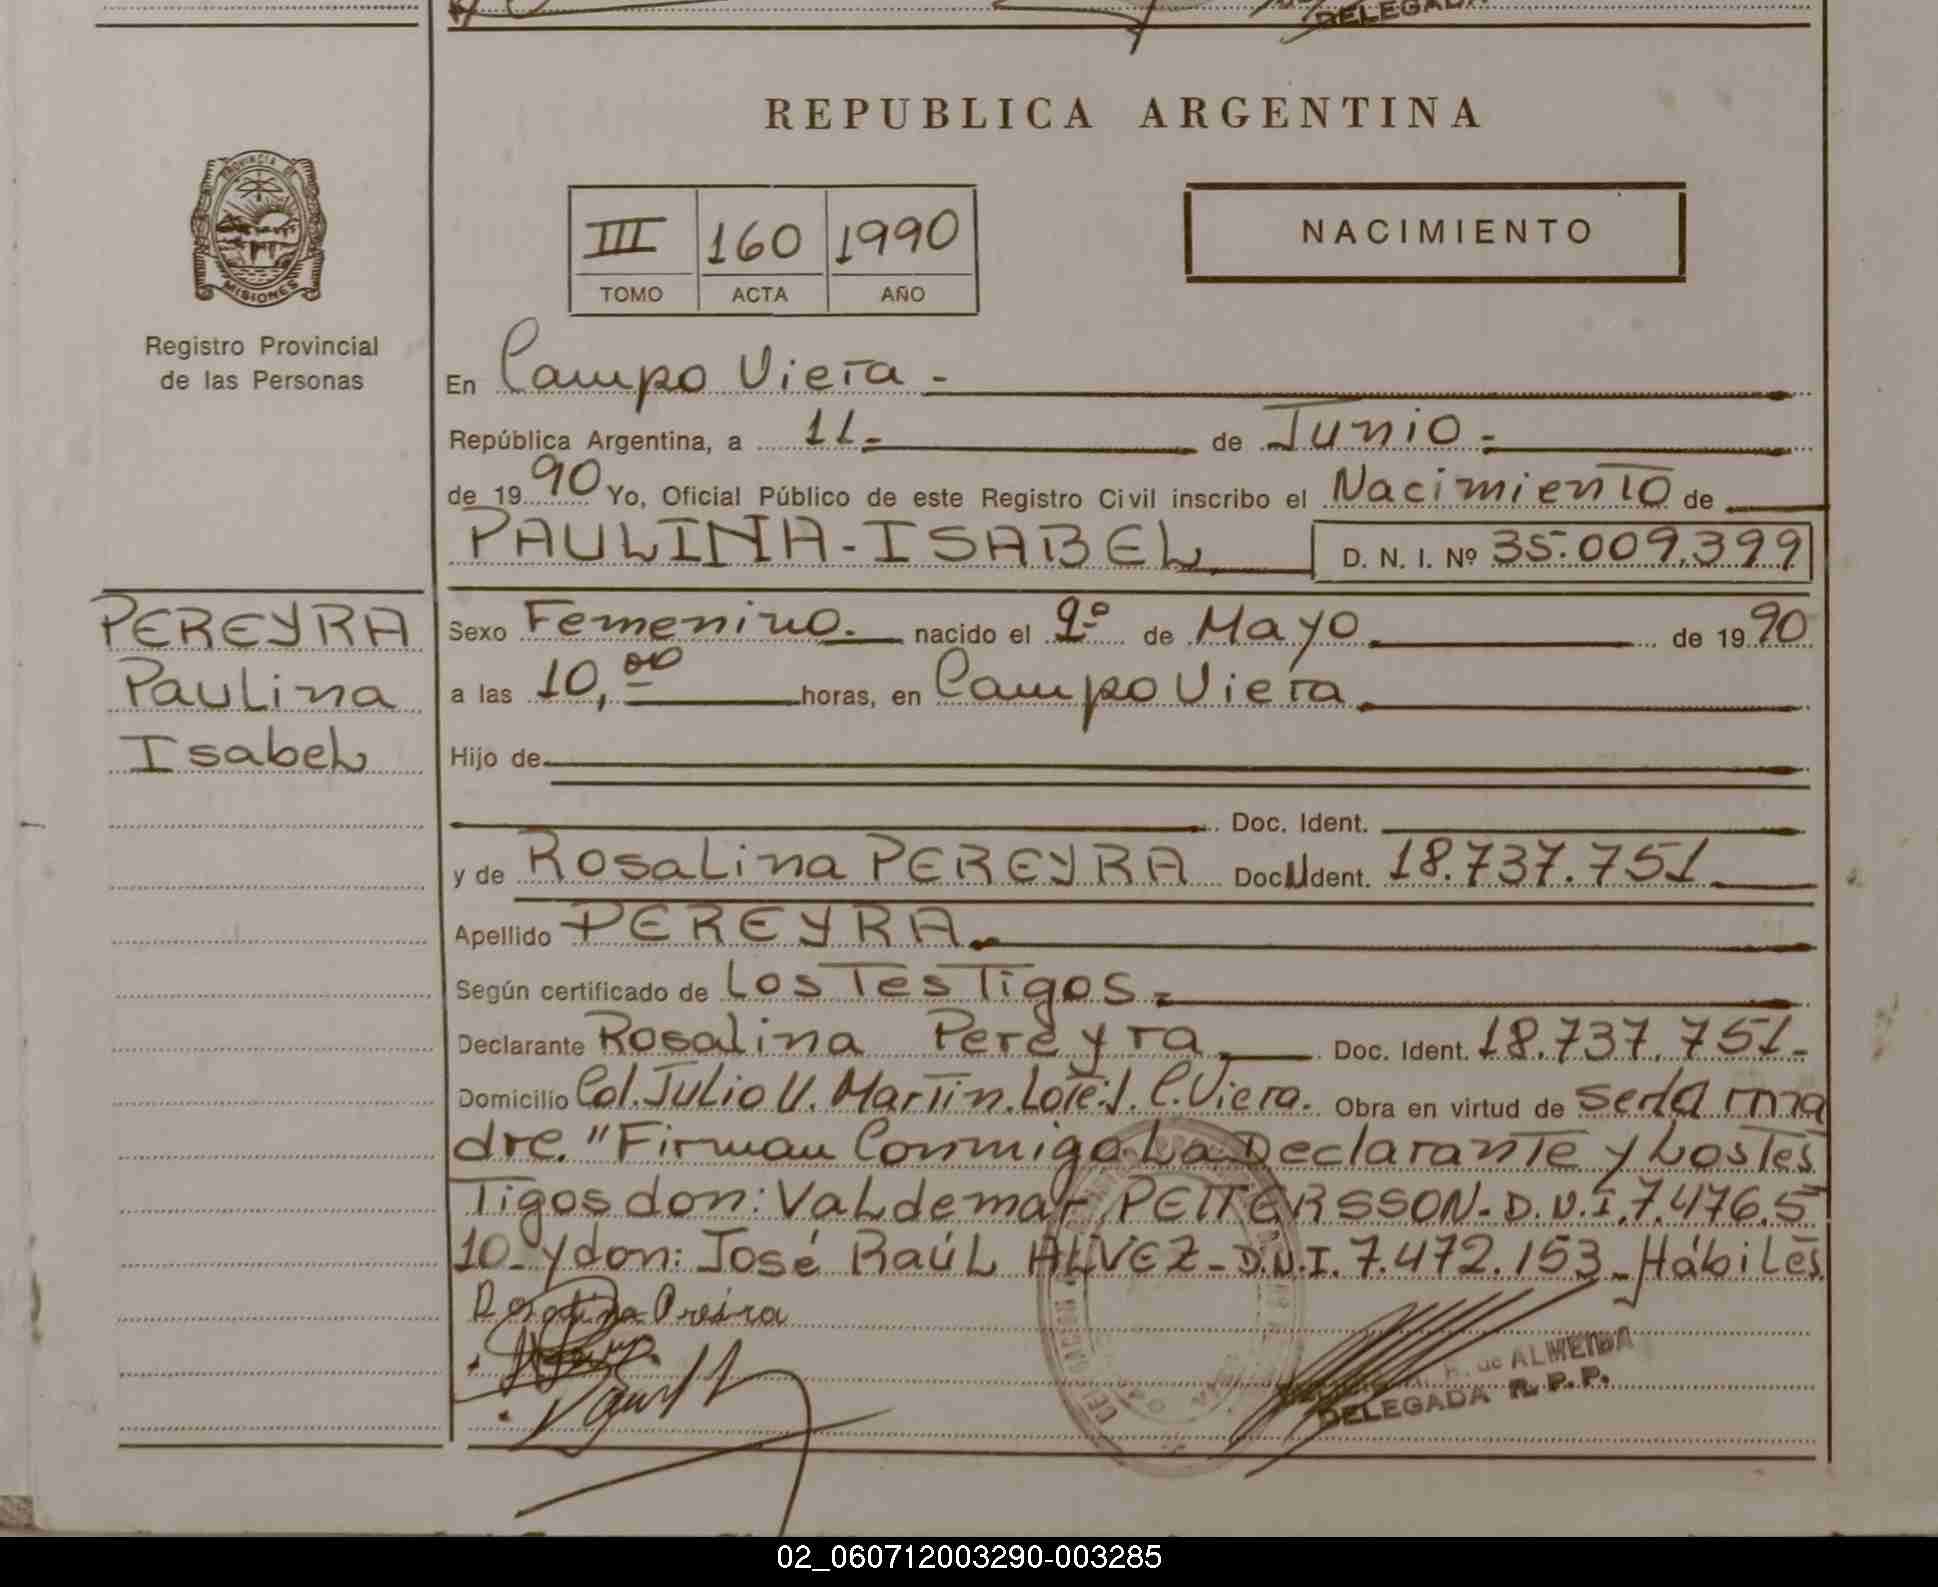 DELEGADA
REPUBLICA ARGENTINA
PROVINCIA DE
MISIONES
Registro Provincial
de las Personas
III 160 1990
TOMO ACTA AÑO
NACIMIENTO
En Campo Viera -
República Argentina, a 11.- de Junio.-
de 1990 Yo, Oficial Público de este Registro Civil inscribo el Nacimiento de
PAULINA-ISABEL D. N. I. Nº 35.009.399
PEREYRA
Paulina
Isabel
Sexo Femenino. nacido el 2º de Mayo de 1990
a las 10,00 horas, en Campo Viera
Hijo de
Doc. Ident.
y de Rosalina PEREYRA Doc. Ident. 18.737.751
Apellido PEREYRA.
Según certificado de Los Testigos.-
Declarante Rosalina Pereyra Doc. Ident. 18.737.751-
Domicilio Col. Julio U. Martin. Lote: C. Viera. Obra en virtud de ser la ma
dre. "Firman Conmigo La Declarante y Los Tes
Tigos don: Valdemar PETTERSSON- D.N.I. 7.476.5
10- y don: José Raúl ALVEZ- D.N.I. 7.472.153- Hábiles
de ALMEIDA
DELEGADA R. P. P.
02_060712003290-003285